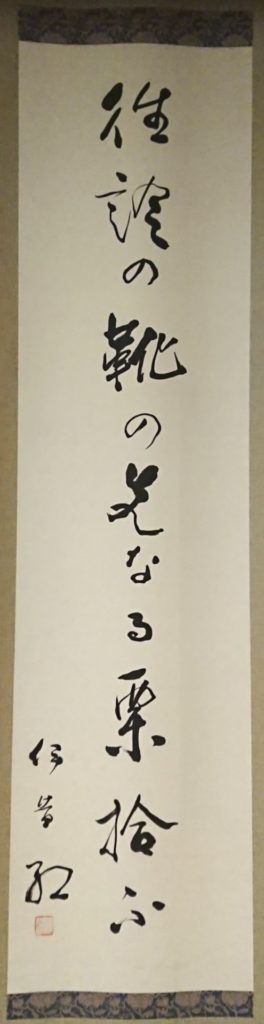 往診の靴の先なる栗拾ふ
伊昔紅